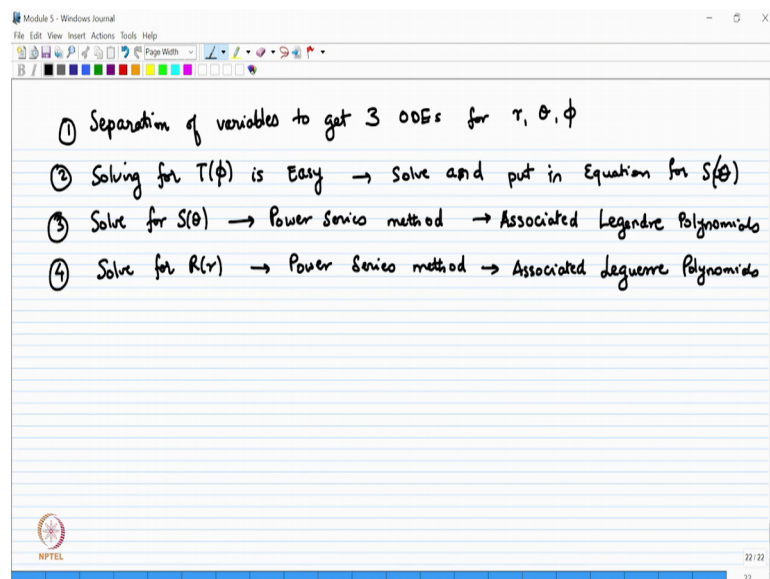 Module 5 - Windows Journal
File Edit View Insert Actions Tools Help
Page Width
B I
① Separation of variables to get 3 ODEs for r, θ, ϕ
② Solving for T(ϕ) is Easy → Solve and put in Equation for S(θ)
③ Solve for S(θ) → Power Series method → Associated Legendre Polynomials
④ Solve for R(r) → Power Series method → Associated Leguerre Polynomials
NPTEL
22/22
22